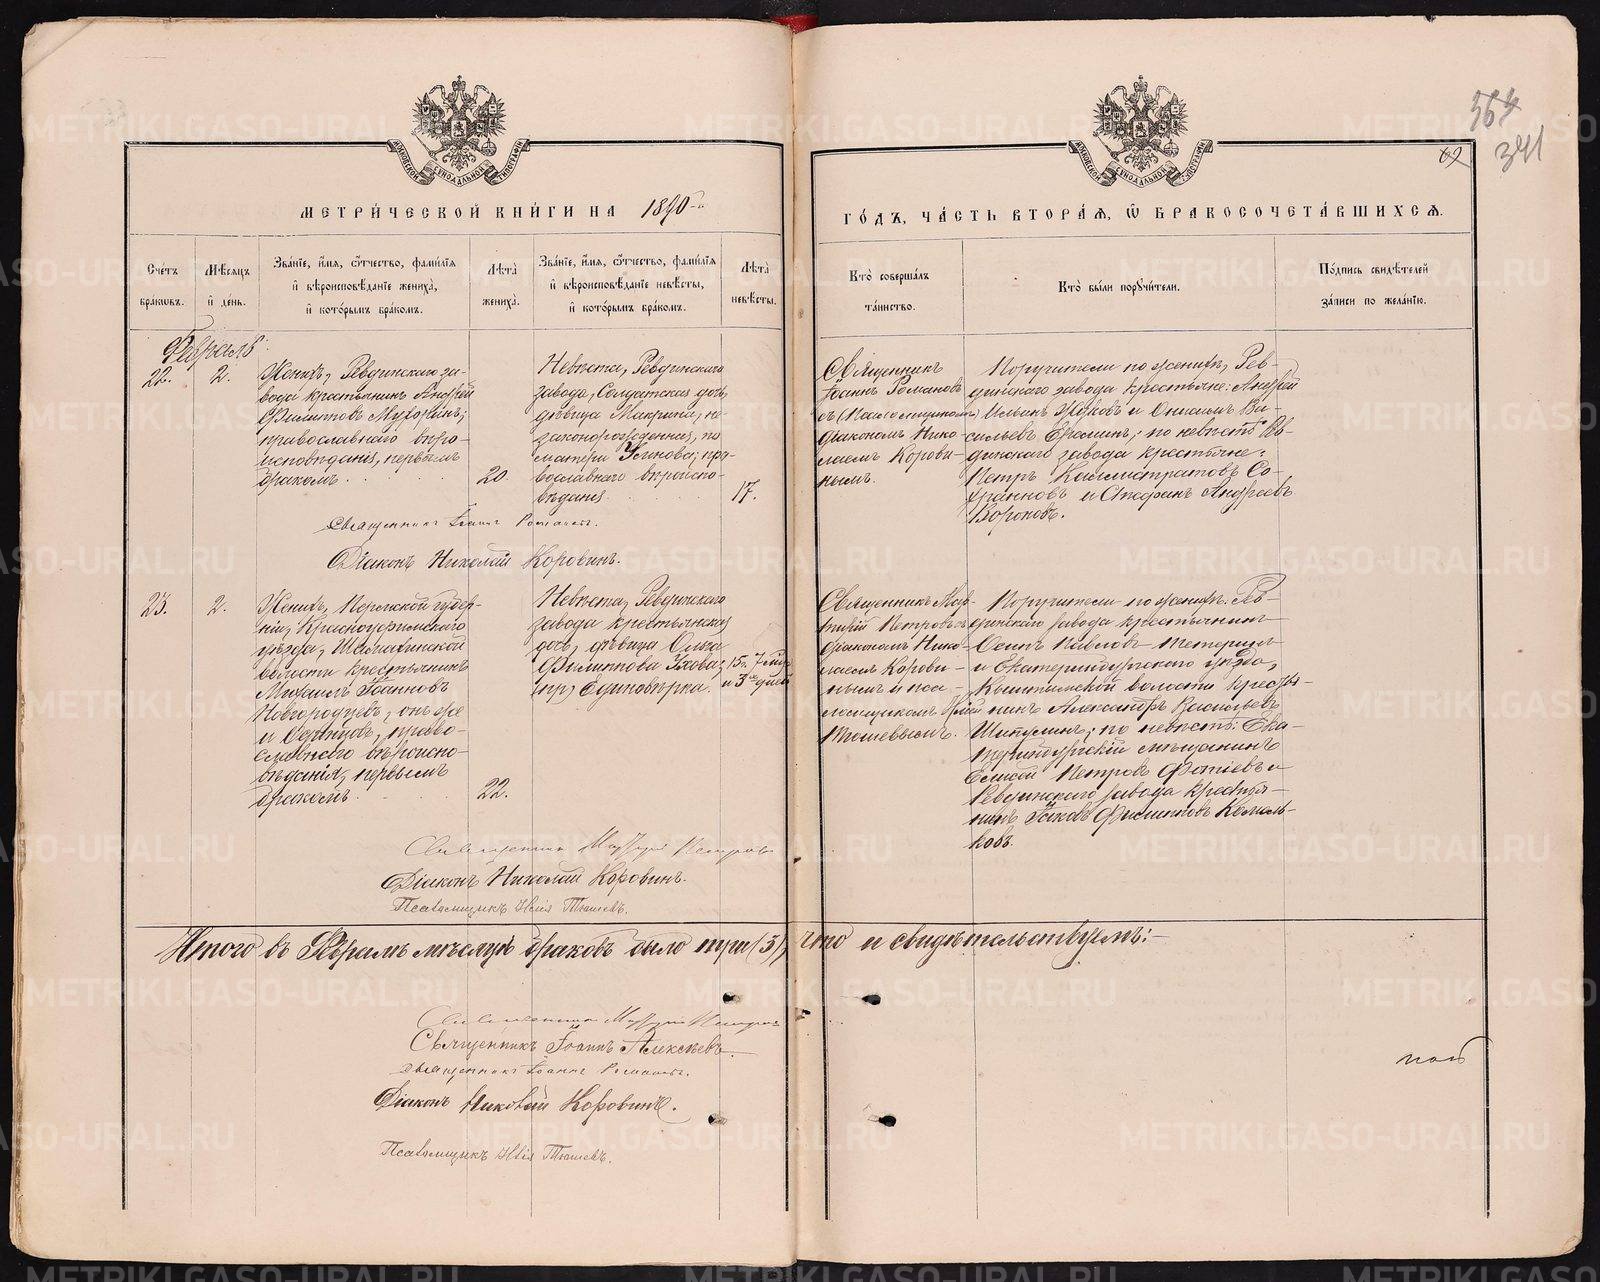 369
341
69
МЕТРИ́ЧЕСКОЙ КНИ́ГИ НА 1890-й
ГО́ДЪ, ЧА́СТЬ ВТОРА́Я, Ѿ БРАКОСОЧЕТА́ВШИХСѦ.
Сче́тъ бра́ковъ.
Мѣ́сяцъ и҆ де́нь.
Зва́нїе, и҆́мя, ѻ҆́тчество, фами́лїя
и҆ вѣроисповѣ́данїе жениха̀,
и҆ кото́рымъ бра́комъ.
Лѣ́та жениха̀.
Зва́нїе, и҆́мя, ѻ҆́тчество, фами́лїя
и҆ вѣроисповѣ́данїе невѣ́сты,
и҆ кото́рымъ бра́комъ.
Лѣ́та невѣ́сты.
Кто̀ соверша́лъ
та́инство.
Кто̀ бы́ли порꙋчи́тели.
По́дпись свидѣ́телей
за́писи по жела́нїю.
Февраль
22.
2.
Женихъ, Ревдинскаго за-
вода крестьянинъ Андрей
Филипповъ
православнаго вѣро-
исповѣданія, первымъ
бракомъ
20.
Невѣста, Ревдинскаго
завода, Солдатская дочь,
дѣвица Макрина, не-
законорожденная, по
матери Устинова; пра-
вославнаго вѣроиспо-
вѣданія
17.
Священникъ
Іоаннъ Романовъ
съ
діакономъ Нико-
лаемъ Корови-
нымъ.
Поручители по женихѣ, Рев-
динскаго завода крестьяне: Андрей
Ильинъ Жуковъ и Онисимъ Ва-
сильевъ Еремин; по невѣстѣ Рев-
динскаго завода крестьяне:
Петръ Каллистратовъ Со-
франновъ и Стефанъ Андреевъ
Вороновъ.
Священникъ Іоаннъ Романовъ.
Діаконъ Николай Коровинъ.
23.
2.
Женихъ, Пермской губер-
ніи, Красноуфимскаго
уѣзда,
волости крестьянинъ
Михаилъ Іоанновъ
Новгородцевъ, онъ же
и право-
славнаго вѣроиспо-
вѣданія, первымъ
бракомъ.
22.
Невѣста, Ревдинскаго
завода крестьянская
дочь, дѣвица Ольга
Филиппова Ухова;
Единовѣрка.
15 л. 7 мѣс
и 3 дней
Священникъ Мар-
тирій Петровъ съ
діакономъ Нико-
лаемъ Корови-
нымъ и пса-
ломщикомъ Иліей
Тюшевымъ.
Поручители по женихѣ: Рев-
динскаго завода крестьянинъ
Осипъ Павловъ Тетеринъ
и Екатеринбургскаго уѣзда,
Кыштымской волости кресть-
янинъ Александръ Васильевъ
Шипулинъ; по невѣстѣ: Ека-
теринбургскій мѣщанинъ
Елисей Петровъ Фотіевъ и
Ревдинскаго завода крестья-
нинъ Іаковъ Филипповъ Комель-
ковъ.
Священникъ Мартирій Петровъ
Діаконъ Николай Коровинъ.
Псаломщикъ Илія Тюшевъ.
Итого въ Февралѣ мѣсяцѣ браковъ было три (3), что и свидѣтельствуемъ:—
Священникъ Мартирій Петровъ
Священникъ Іоаннъ Алексѣевъ.
Священникъ Іоаннъ Романовъ.
Діаконъ Николай Коровинъ.
Псаломщикъ Илія Тюшевъ.
METRIKI.GASO-URAL.RU